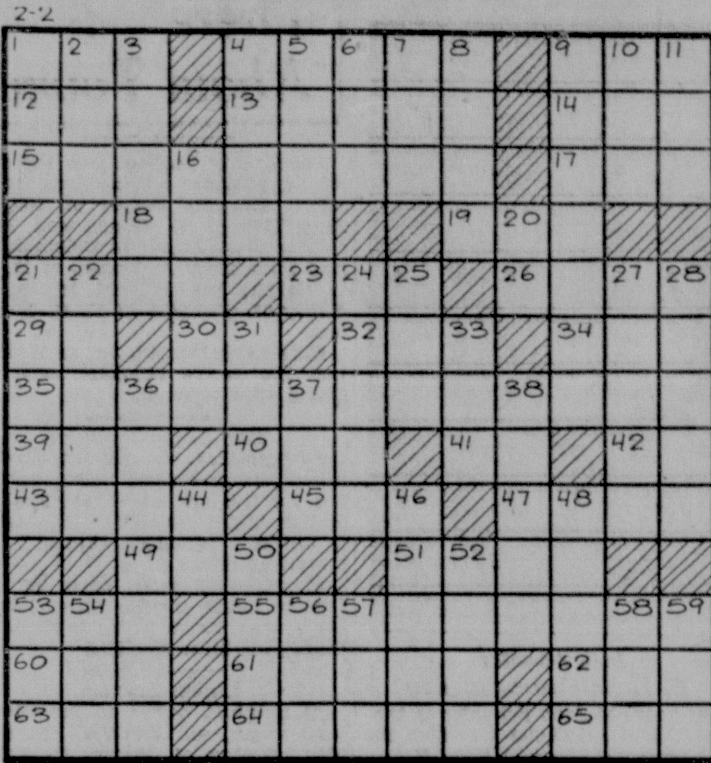 2-2
1 2 3 4 5 6 7 8 9 10 11
12 13 14
15 16 17
18 19 20
21 22 23 24 25 26 27 28
29 30 31 32 33 34
35 36 37 38
39 40 41 42
43 44 45 46 47 48
49 50 51 52
53 54 55 56 57 58 59
60 61 62
63 64 65